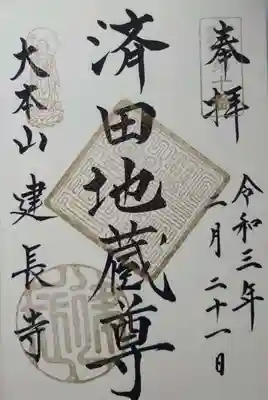 奉拝
令和三年
一月二十一日
済田地蔵尊
大本山 建長寺